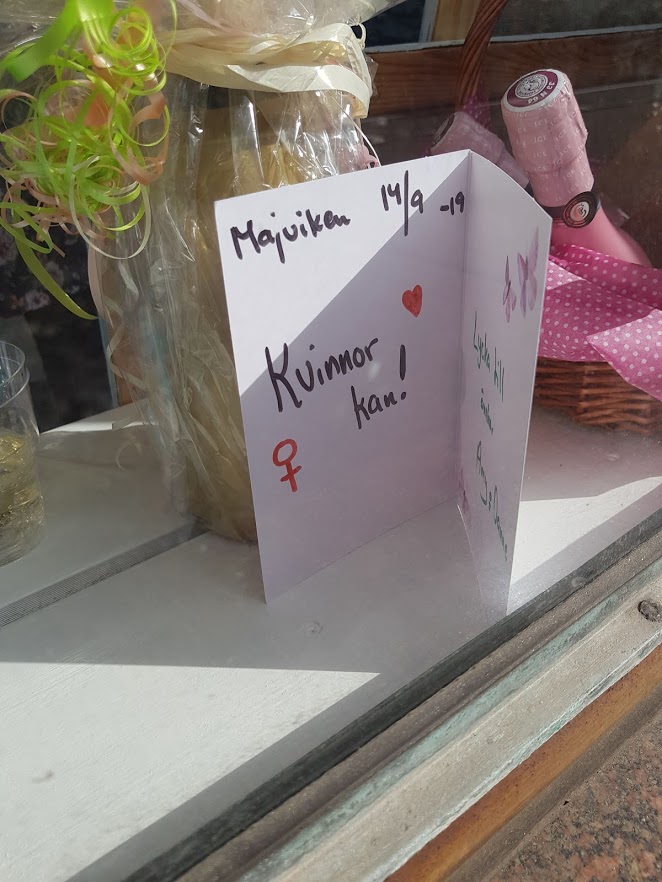 Majviken 14/9 -19
Kvinnor
kan!
Lycka till